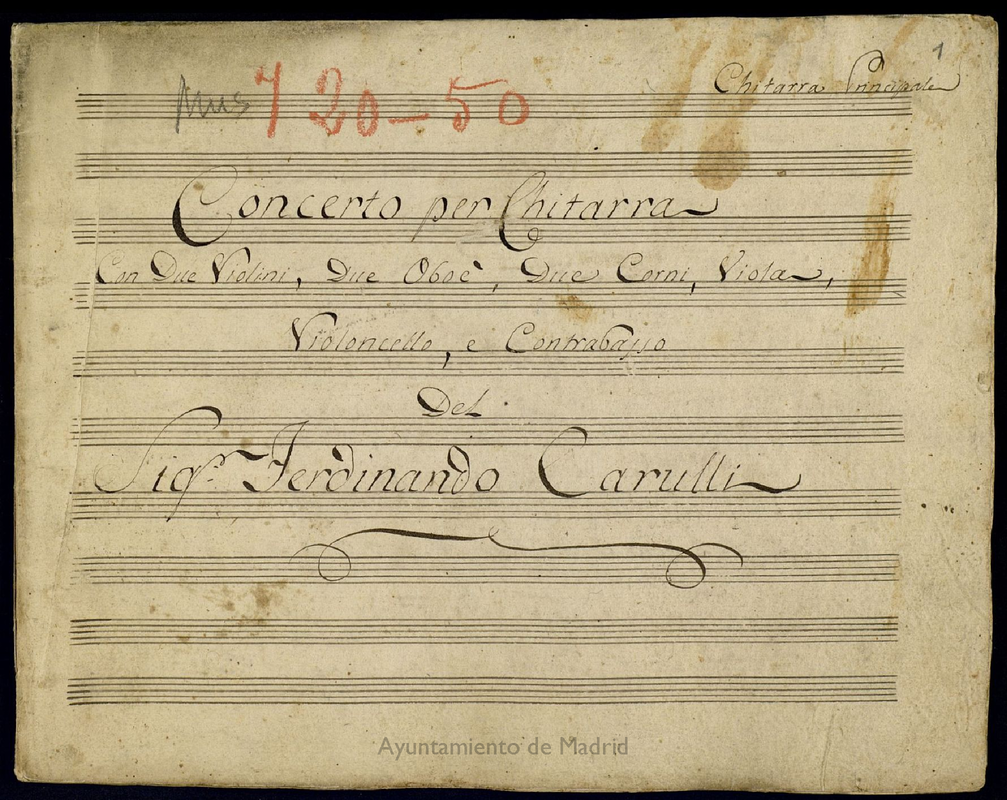 1
Chitarra Principale
Mus 720-50
Concerto per Chitarra
Con Due Violini, Due Oboè, Due Corni, Viola,
Violoncello, e Contrabasso
Del
Sigr. Ferdinando Carulli
Ayuntamiento de Madrid